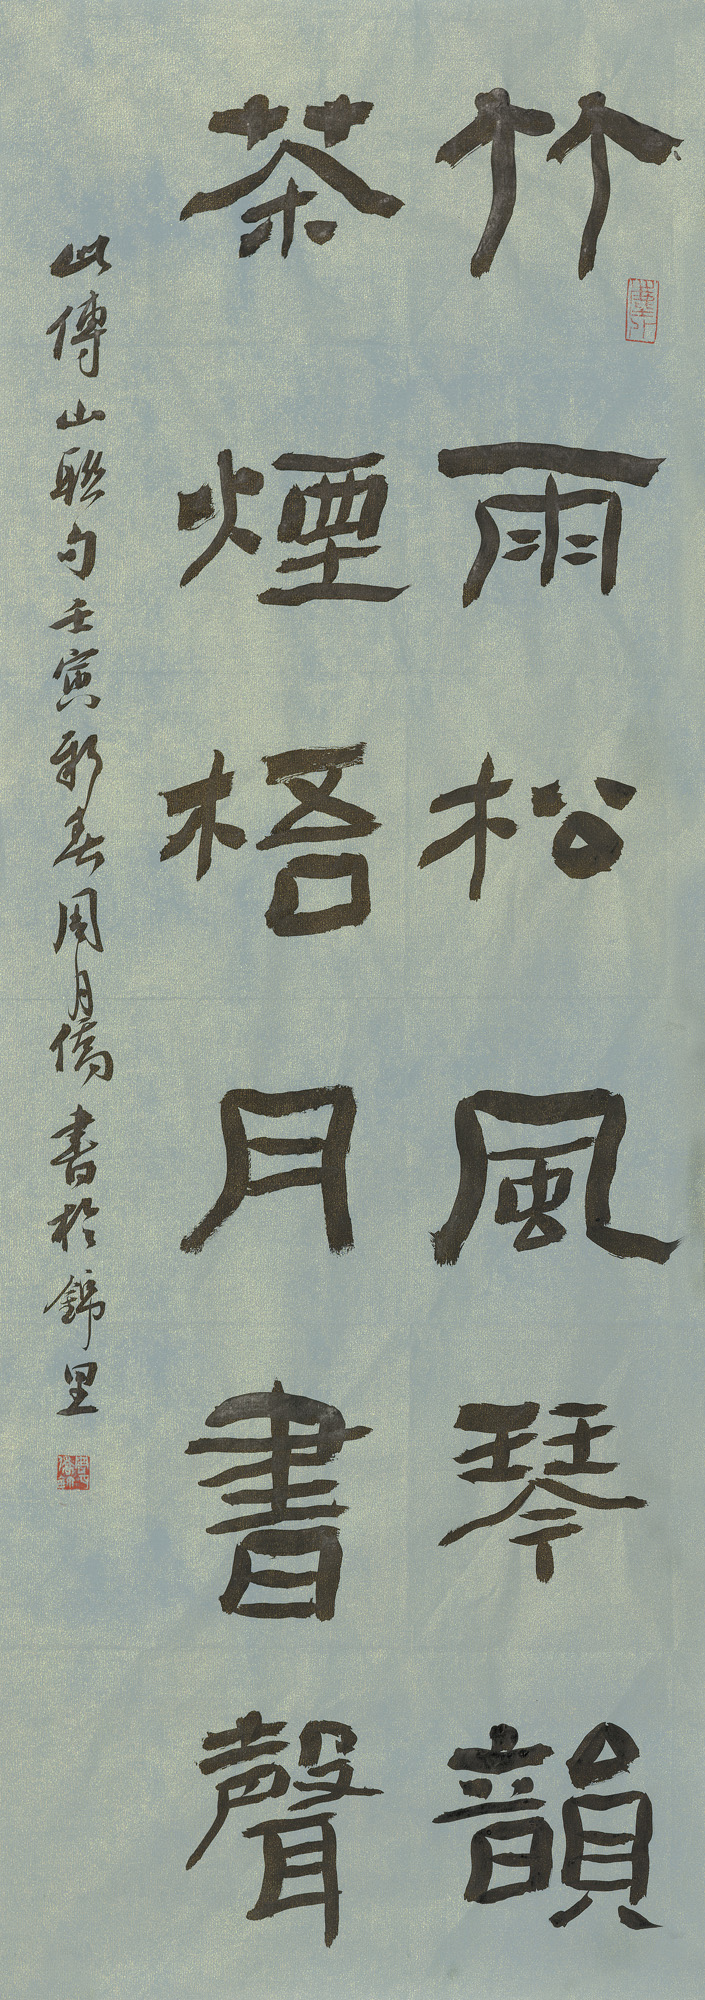 竹雨松風琴韻
茶煙梧月書聲
此傅山聯句壬寅新春周月僑書於錦里